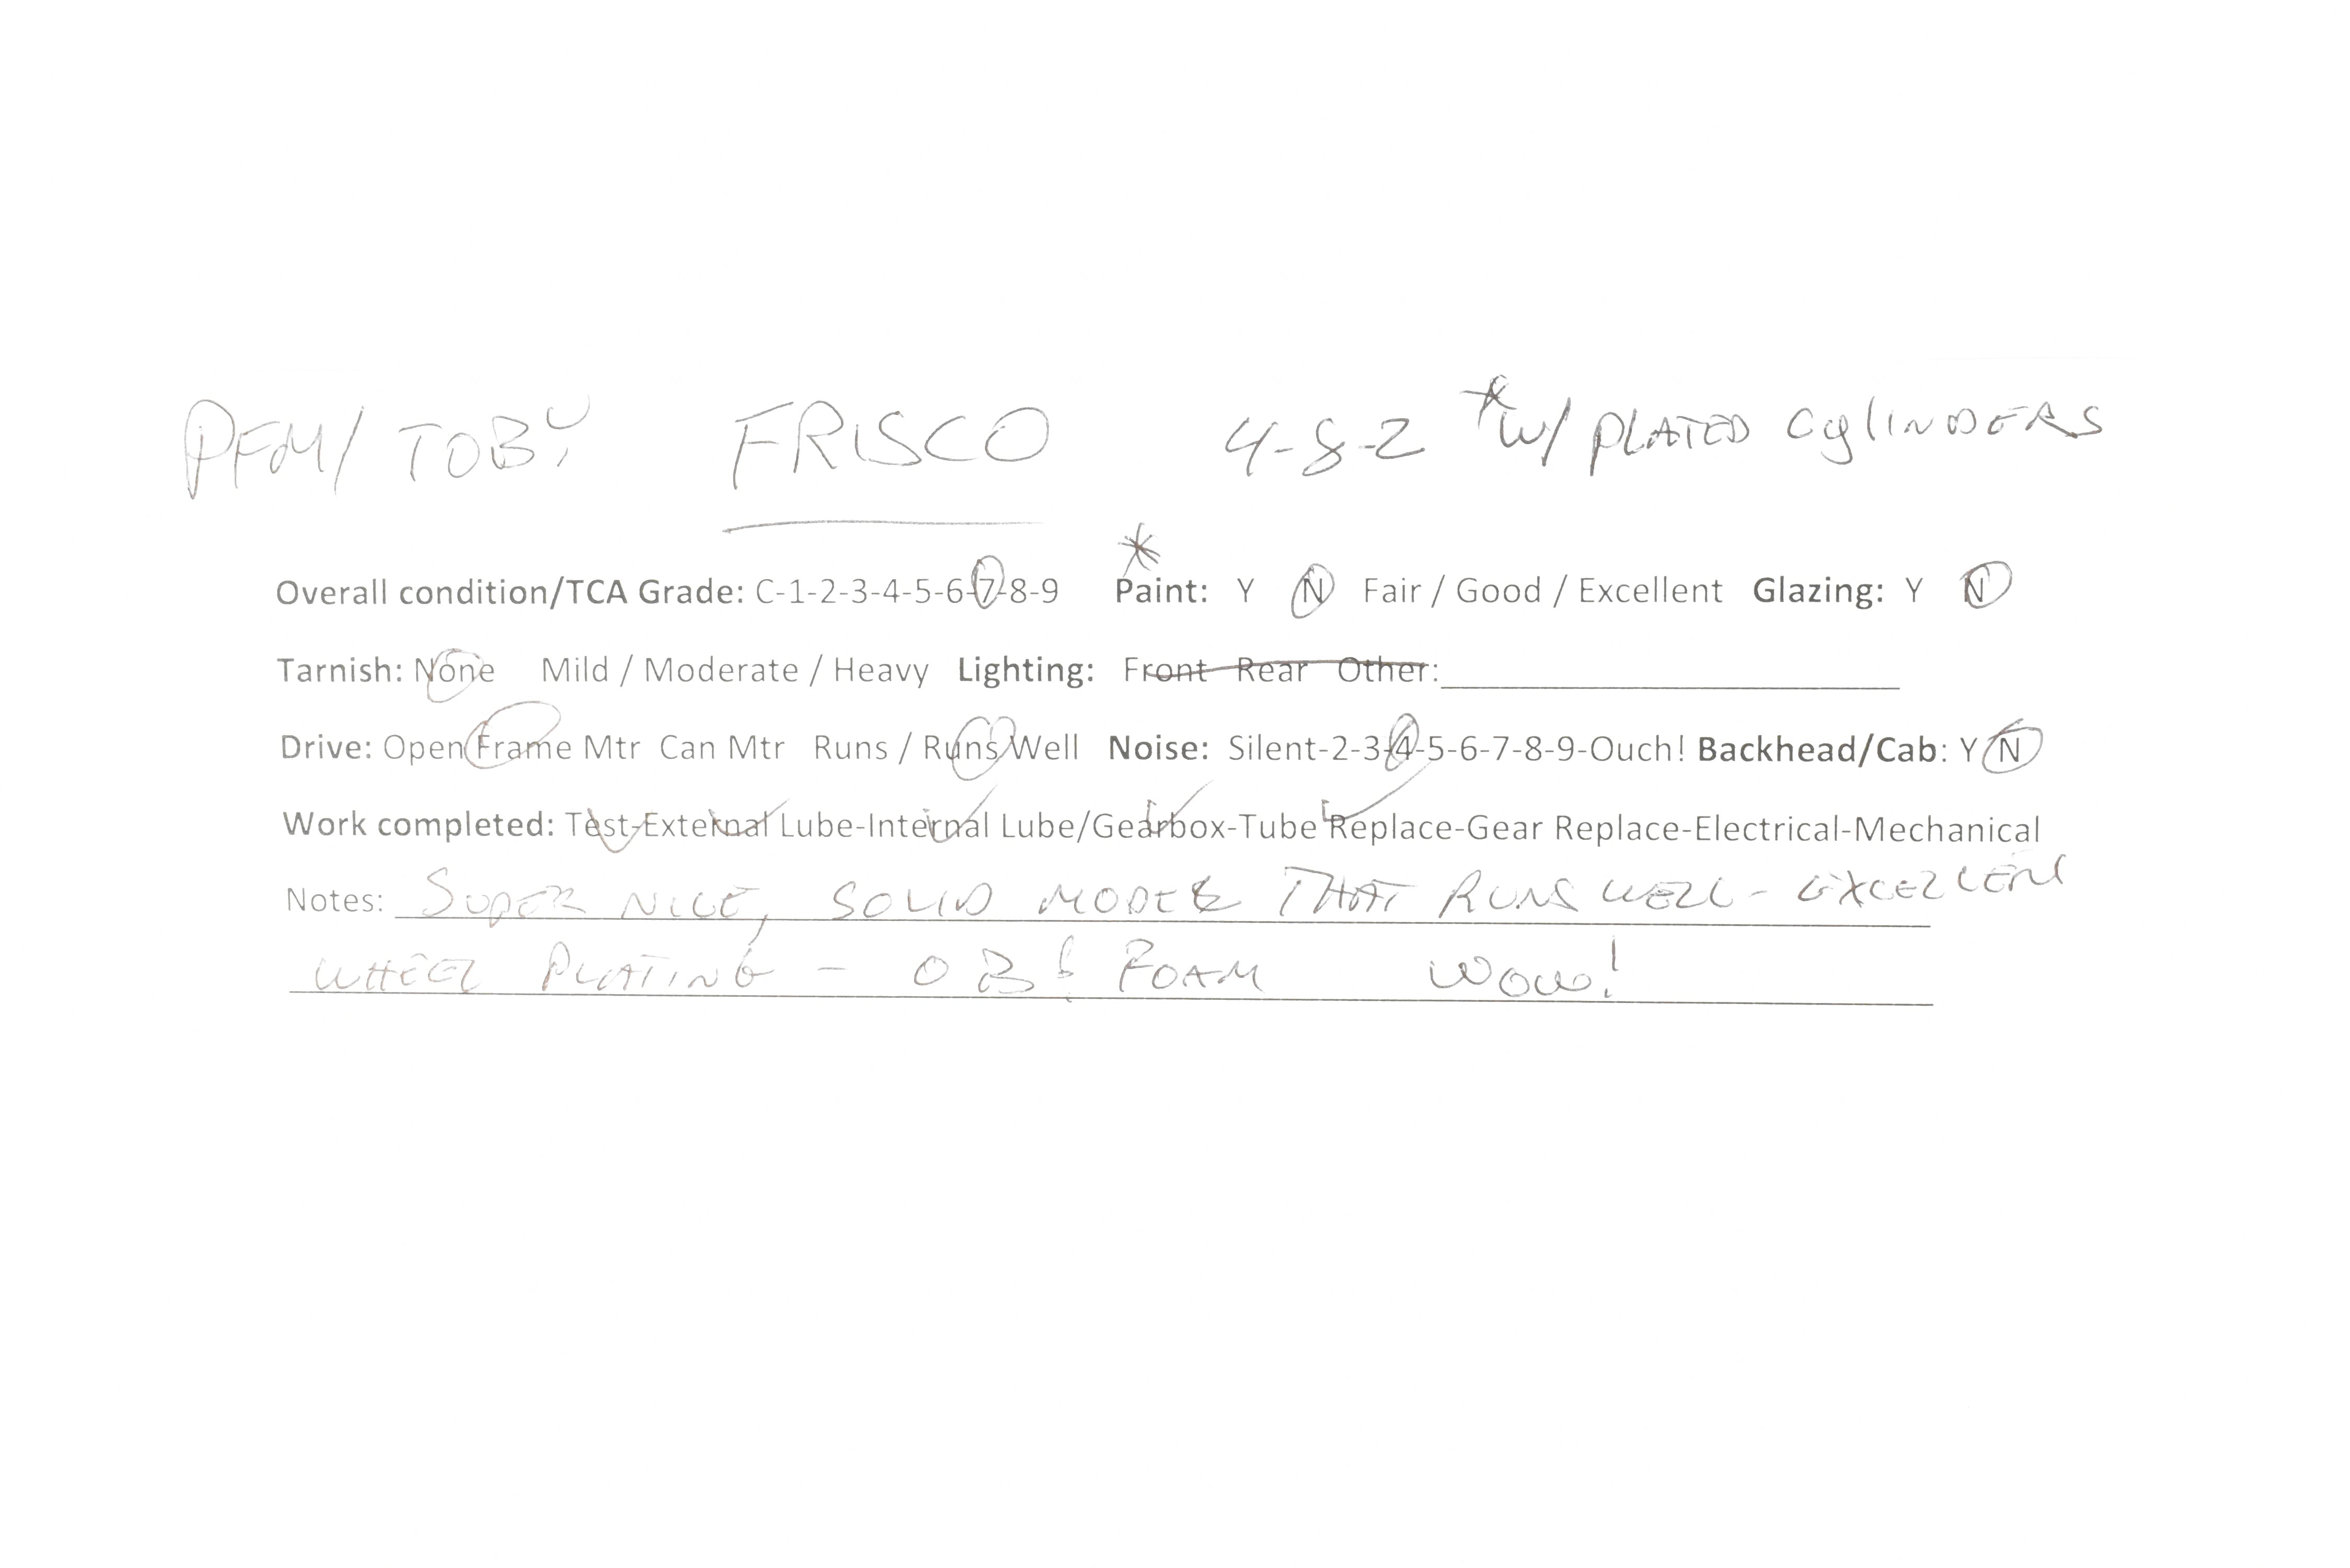 PFM/ TOBY FRISCO 4-8-2 *W/ PLATED CYLINDERS
*
Overall condition/TCA Grade: C-1-2-3-4-5-6-7-8-9 Paint: Y N Fair / Good / Excellent Glazing: Y N
Tarnish: None Mild / Moderate / Heavy Lighting: Front Rear Other:
Drive: Open Frame Mtr Can Mtr Runs / Runs Well Noise: Silent-2-3-4-5-6-7-8-9-Ouch! Backhead/Cab: Y N
Work completed: Test-External Lube-Internal Lube/Gearbox-Tube Replace-Gear Replace-Electrical-Mechanical
Notes: SUPER NICE, SOLID MODEL THAT RUNS WELL - EXCELLENT
WHEEL PLATING - OB & FOAM WOW!